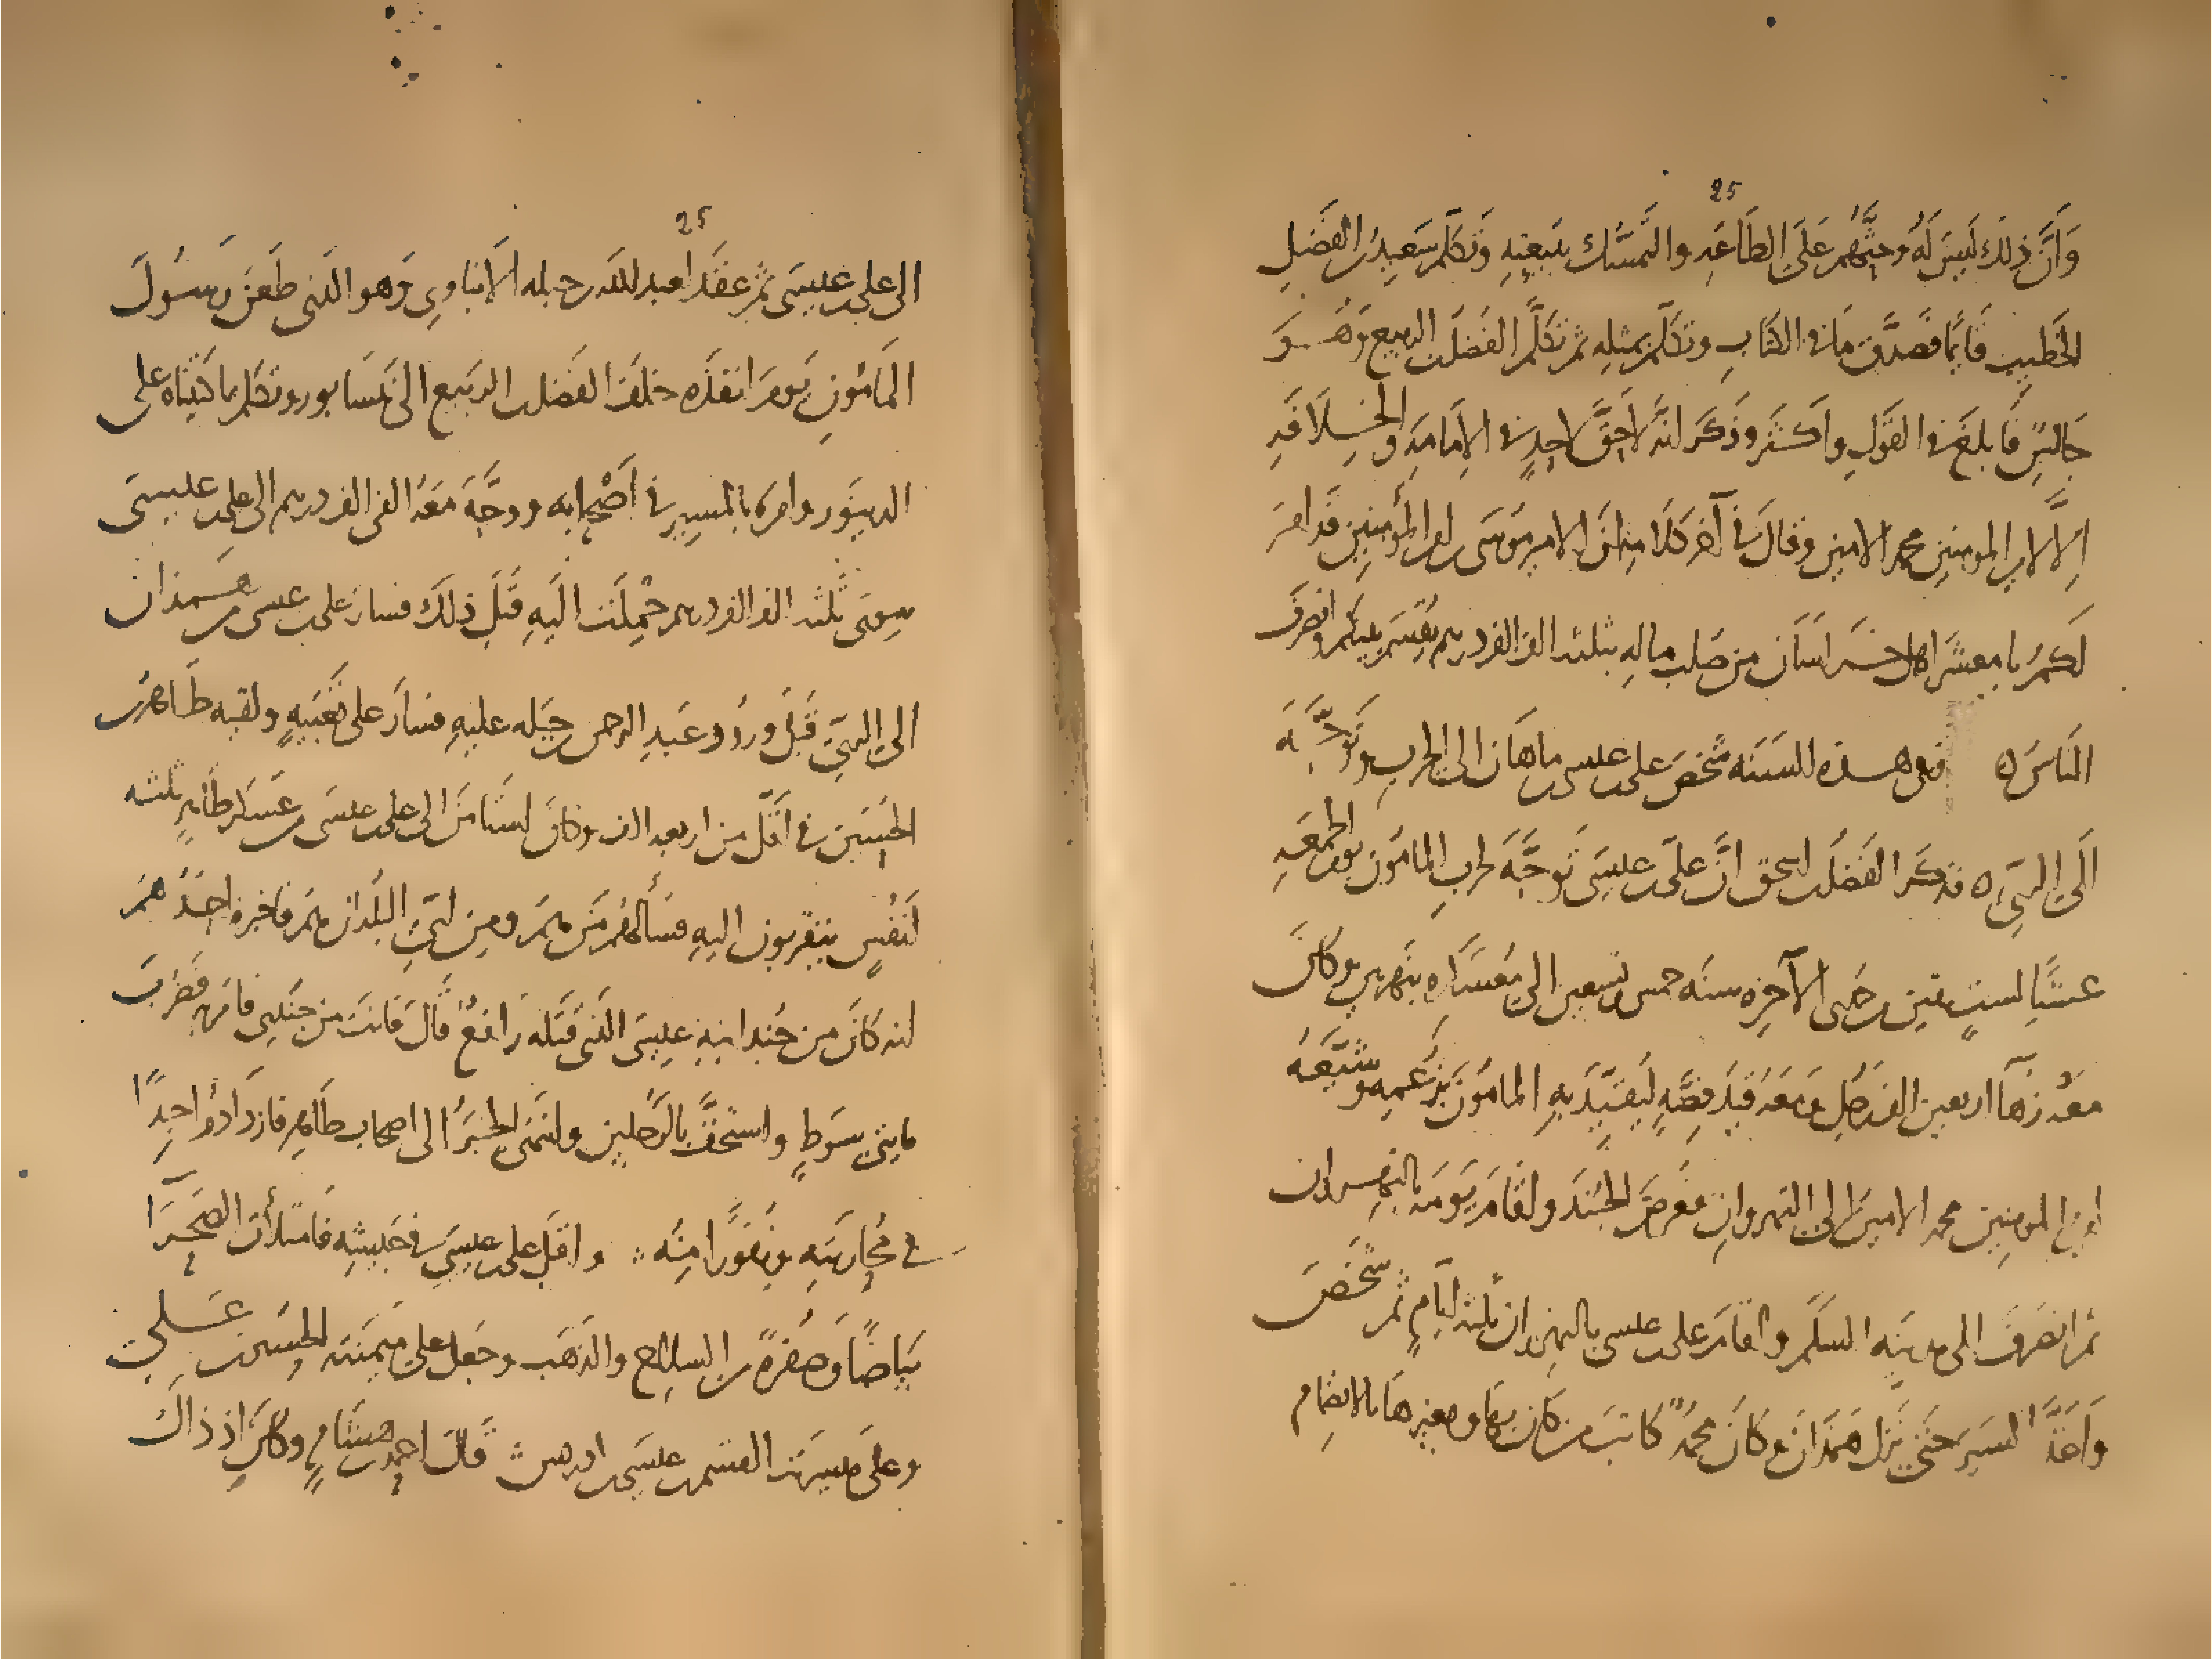 25
وَأنَّ ذلك ليسَ لَهُ وحثَّهُم عَلَى الطَاعَهِ والتَمسُّك ببَيعتِهِ وَتكلّم سَعِيدُ بن الفَضلِ
الخَطِيب قَائِمًا فَصَدَّق مَا في الكتَابِ وتكلّم بمثلِهِ ثم تكلَّمَ الفَضلُ بن الربيع وَهُو
جَالِسٌ فَابلغَ في القَولِ واَكثَرَ وذَكَرَ انَّهُ لاحَقَّ لاحدٍ في الاِمَامَهِ والخِلَافَهِ
اِلَّا لامير المومنينِ محمد الامين وقالَ في آخر كَلَامِهِ انَّ الامير مُوسَى بن امير المؤمنِين قد امرَ
لَكُم يا معشَرَ اهل خُرَاسَان من صُلب مالِهِ بثلثه الف الف درهم تُقسَم بينكُم وانصَرفَ
النَاسُ ه وفي هذه السَنَه شَخَصَ على بن عيسى بن ماهَان الى الحَربِ وتَوَجَّهَ
اِلَى الرَىِّ ه فذكَرَ الفَضلُ بن اسحق انَّ علىّ بن عيسَى تَوجَّهَ لحربِ المامُونِ يوم الجُمعَهِ
عَشيًّا لستٍ بقين من جمادى الآخِرَه سنَه خمس وتسعين الى مُعسكَرِهِ بنهربين وكانَ
معَهُ زُهَآ اربعين الف رَجُلٍ ومَعَهُ قَيدُ فِضَّهٍ لِيُقَيِّدَ بِهِ المامُونَ بزَعمِهِ وشَيَّعَهُ
امير المومنِين محمد الامين الى النهروان فعَرَضَ الجُندَ واقَامَ يَومَهُ بالنهروان
ثم انصَرَفَ الى مدينَه السَلَم واقَامَ على بن عيسى بالنهروان ثلثه ايَّامٍ ثم شَخَصَ
وَاَغَذَّ السَيرَ حتَّى نزل هَمَذَانَ وكَانَ محمدٌ كاتبَ من كان بها وبغيرهَا بالانضمام
25
الى على بن عيسَى ثم عقَدَ لعبد الله بن جبله الابناوى وَهو الذي طَعَنَ رسُولَ
المَامُونِ يَومَ انفذَه خلفَ الفَضل بن الربيع الى نَيسَابور وتكلم بما كتبناه على
الدينَور وامرَه بالمسير في اَصْحابه ووجَّهَ معَهُ الفى الف درهم الى على بن عيسى
سِوَى ثلثه الف الف درهم حُمِلَت الَيهِ قَبلَ ذلكَ فسارَ على بن عيسى من هَمَذان
الى الرَىّ قَبلَ ورُودِ عَبدِ الرحمن بن جبله عليهِ فسارَ على تعبِيَهٍ ولقيه طَاهرُ بن
الحُسَين في اَقلّ من اربعه الاف وكانَ استَامَنَ الى على بن عيسَى من عَسكرِ طَاهرٍ ثلثه
اَنفُسٍ يتقربون اليهِ فسَألهُم مَن هُم ومِن اىّ البُلدان هُم فاخبرهُ احَدُهُم
انه كانَ من جُندِ ابنِهِ عيسَى الذي قَتله رَافعٌ قَالَ فانتَ من جُندى فامَرَ به فضُربَ
مايتى سَوطٍ واستخفَّ بالرَجُلين وانتَهى الخَبَرُ الى اصحاب طَاهر فازدَادُوا جِدًّا
في مُحارَبَتِهِ ونُفُورًا مِنهُ واقبَل على بن عيسَى في جَيشِهِ فامتَلأَت الصَحرَآ
بَيَاضًا وَصُفرَهً من السِلاح والذَهَب وجعَل على مَيمَنتِه الحُسَين بن عَلىٍّ
وعلى مَيسَرته القسم بن عيسَى بن ادريس قالَ احمد بن هِشَامٍ وكانَ اذ ذَاك